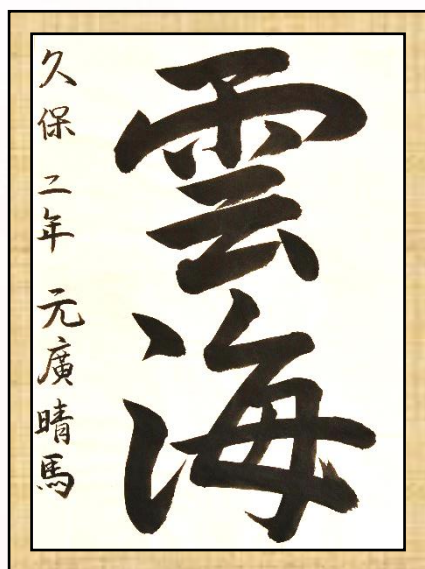 雲海
久保 二年 元廣晴馬